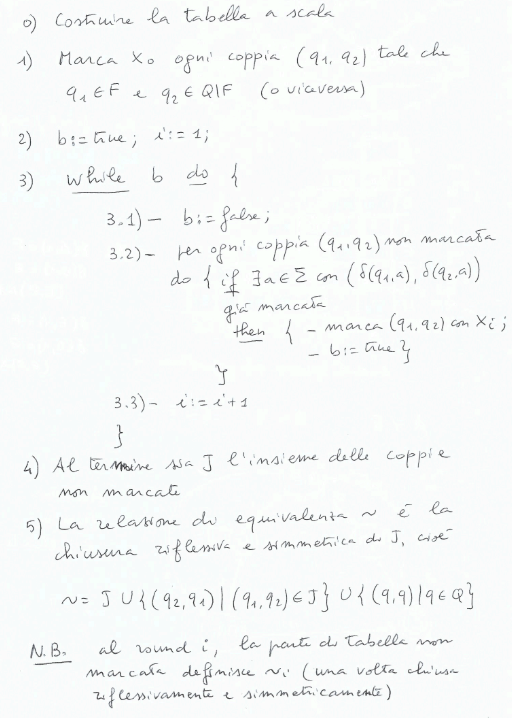 0) Costruire la tabella a scala
1) Marca X₀ ogni coppia (q₁, q₂) tale che
q₁ ∈ F e q₂ ∈ Q\F (o viceversa)
2) b:= true; i:= 1;
3) while b do {
3.1) - b:= false;
3.2) - per ogni coppia (q₁,q₂) non marcata
do { if ∃a∈Σ con (δ(q₁,a), δ(q₂,a))
già marcata
then { - marca (q₁,q₂) con Xi;
- b:= true }
}
3.3) - i:= i+1
}
4) Al termine sia J l'insieme delle coppie
non marcate
5) La relazione di equivalenza ~ é la
chiusura riflessiva e simmetrica di J, cioé
~ = J ∪ {(q₂,q₁) | (q₁,q₂) ∈ J} ∪ {(q,q) | q ∈ Q}
N.B. al round i, la parte di tabella non
marcata definisce ~i (una volta chiusa
riflessivamente e simmetricamente)